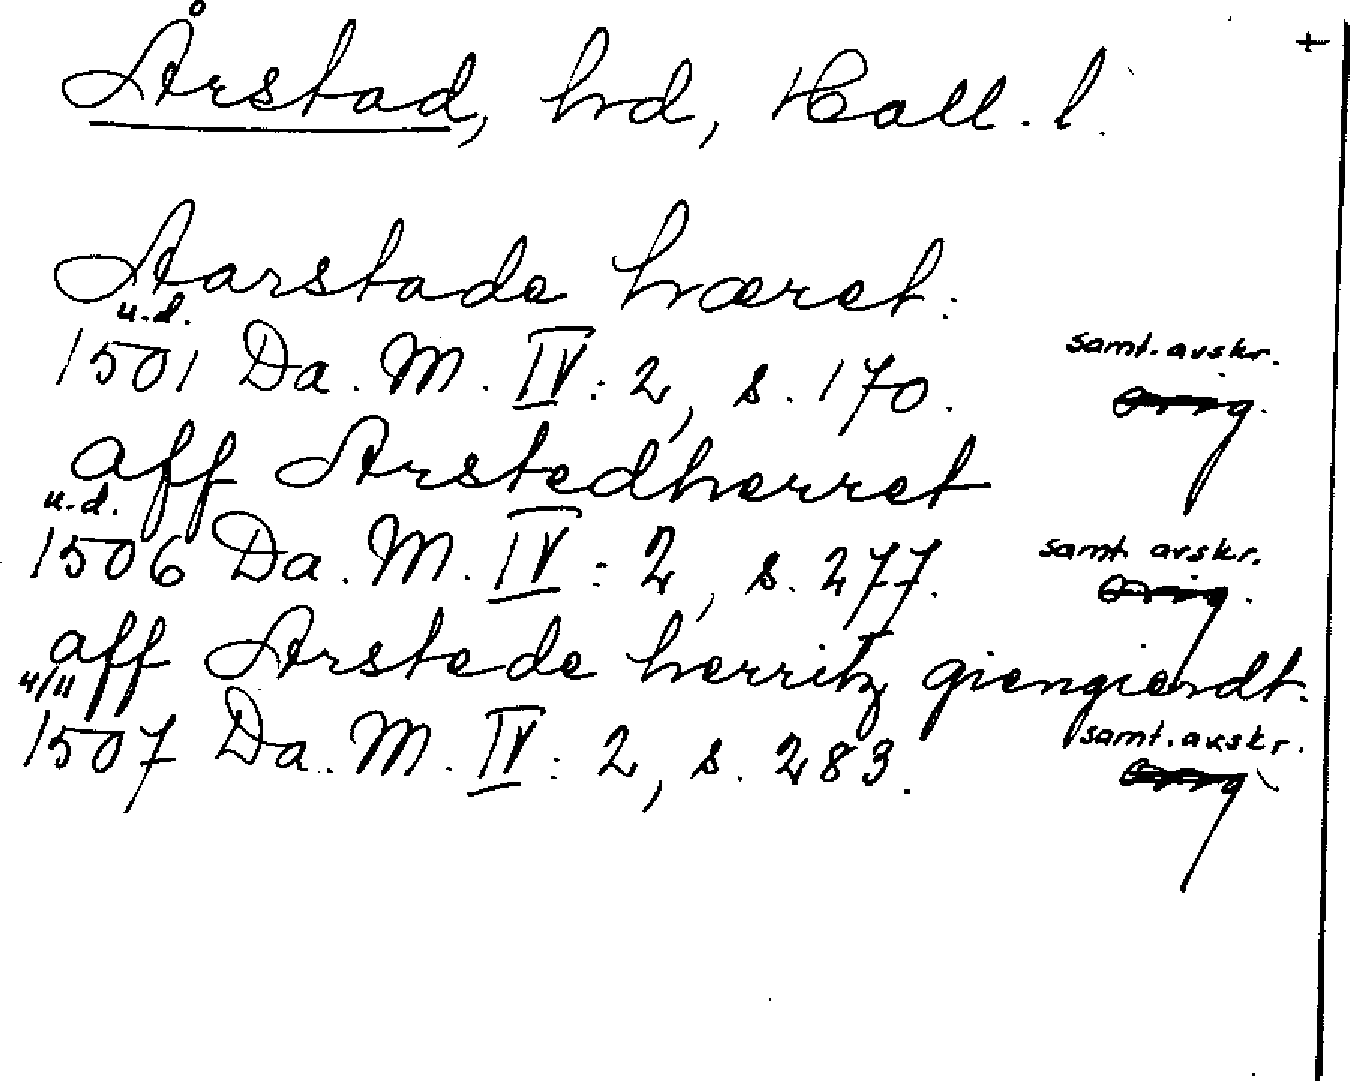 +
Årstad, hd, Hall. l.
Aarstade hæret.
u.d.
1501 Da. M. IV: 2, s. 170. samt. avskr.
Orig.
aff Arstedherret
u.d.
1506 Da. M. IV: 2, s. 277. samt. avskr.
Orig.
aff Arstede herritz giengierdt.
4/11
1507 Da. M. IV: 2, s. 283. samt. avskr.
Orig.